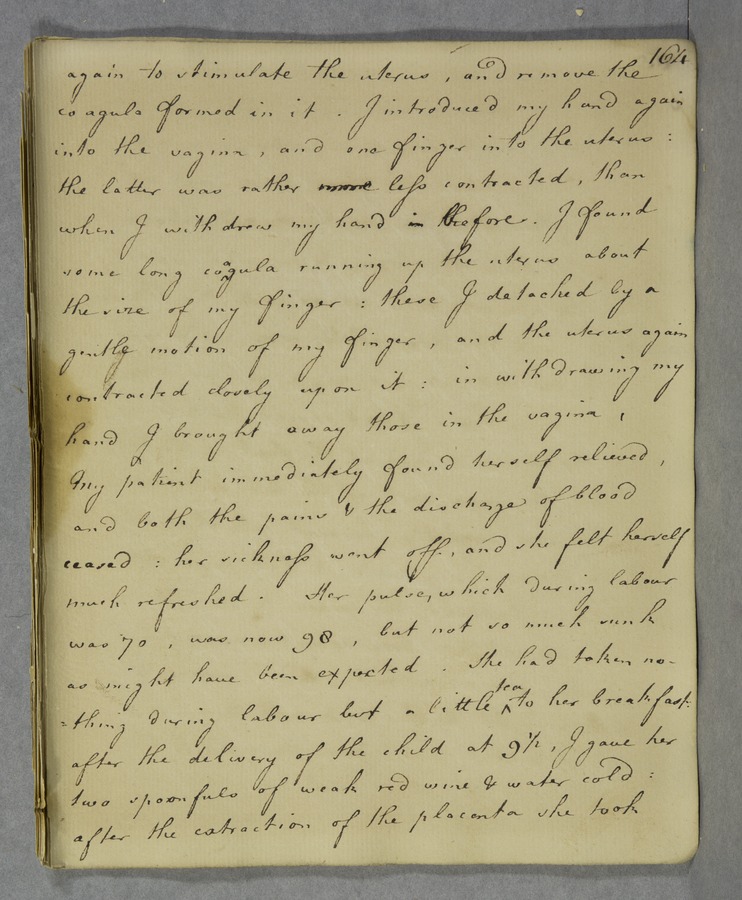 164
again to stimulate the uterus, and remove the
coagula formed in it. I introduced my hand again
into the vagina, and one finger into the uterus:
the latter was rather more less contracted, than
when I withdrew my hand in before. I found
some long coagula running up the uterus about
the size of my finger: these I detached by a
gentle motion of my finger, and the uterus again
contracted closely upon it: in withdrawing my
hand I brought away those in the vagina,
My patient immediately found herself relieved,
and both the pains & the discharge of blood
ceased: her sickness went off, and she felt herself
much refreshed. Her pulse, which during labour
was 70, was now 98, but not so much sunk
as might have been expected. She had taken no-
=thing during labour but a little tea to her breakfast:
after the delivery of the child at 9½, I gave her
two spoonfuls of weak red wine & water cold:
after the extraction of the placenta she took